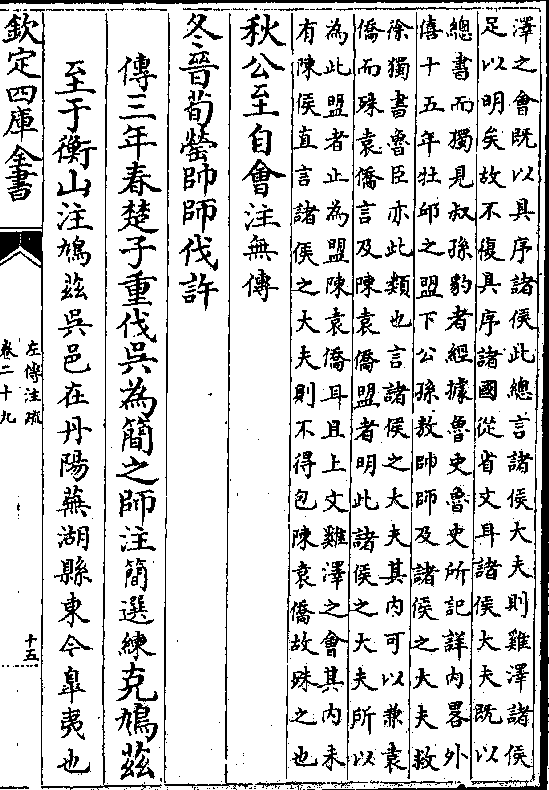 澤之會既以具序諸侯此總言諸侯大夫則雞澤諸侯
足以明矣故不復具序諸國從省文耳諸侯大夫既以
總書而獨見叔孫豹者經據魯史魯史所記詳內畧外
僖十五年牡邱之盟下公孫敖帥師及諸侯之大夫救
徐獨書魯臣亦此類也言諸侯之大夫其內可以兼袁
僑而殊袁僑言及陳袁僑盟者明此諸侯之大夫所以
為此盟者止為盟陳袁僑耳且上文雞澤之會其內未
有陳侯直言諸侯之大夫則不得包陳袁僑故殊之也
秋公至自會注無傳
冬晉荀罃帥師伐許
傳三年春楚子重伐吳為簡之師注簡選練克鳩茲
至于衡山注鳩茲吳邑在丹陽蕪湖縣東今臯夷也
欽定四庫全書
左傳注疏
卷二十九
十五